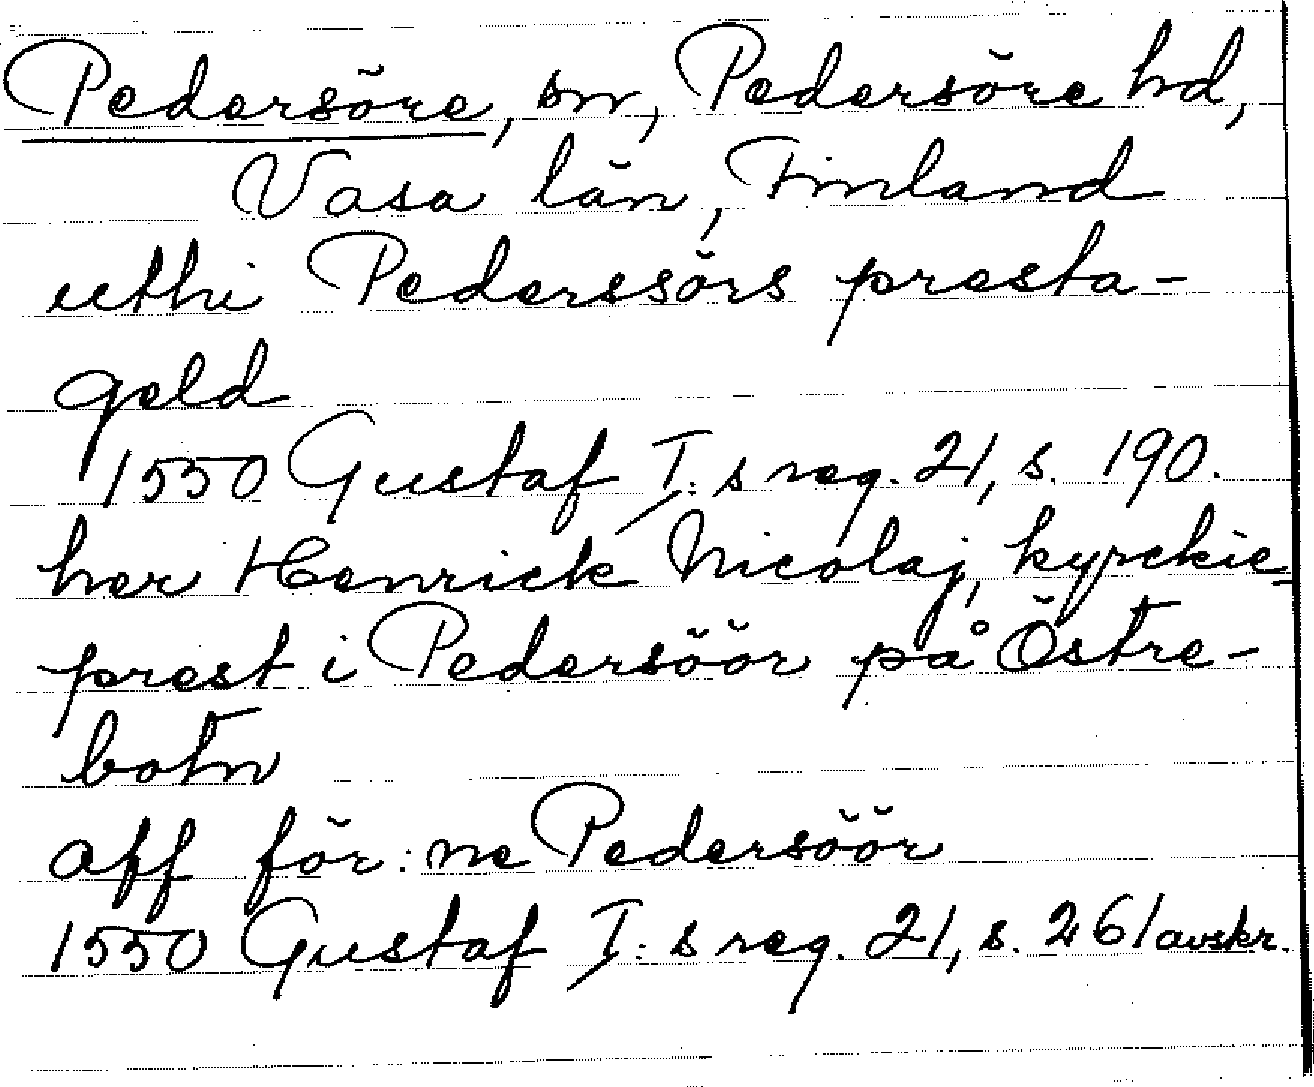 Pedersöre, sn, Pedersöre hd,
Vasa län, Finland
uthi Pederssörs presta-
geld
1550 Gustaf I:s reg. 21, s. 190.
her Henrick Nicolaj, kyrckie-
prest i Pedersöör på Östre-
botn
aff för:ne Pedersöör
1550 Gustaf I:s reg. 21, s. 261 avskr.